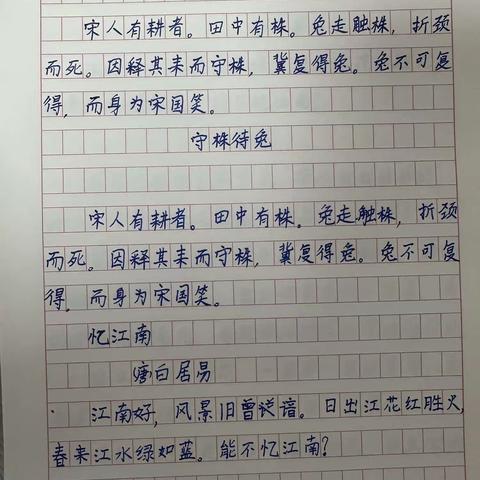 宋人有耕者。田中有株。兔走触株，折颈
而死。因释其耒而守株，冀复得兔。兔不可复
得，而身为宋国笑。
守株待兔
宋人有耕者。田中有株。兔走触株，折颈
而死。因释其耒而守株，冀复得兔。兔不可复
得，而身为宋国笑。
忆江南
唐白居易
江南好，风景旧曾谙。日出江花红胜火，
春来江水绿如蓝。能不忆江南？